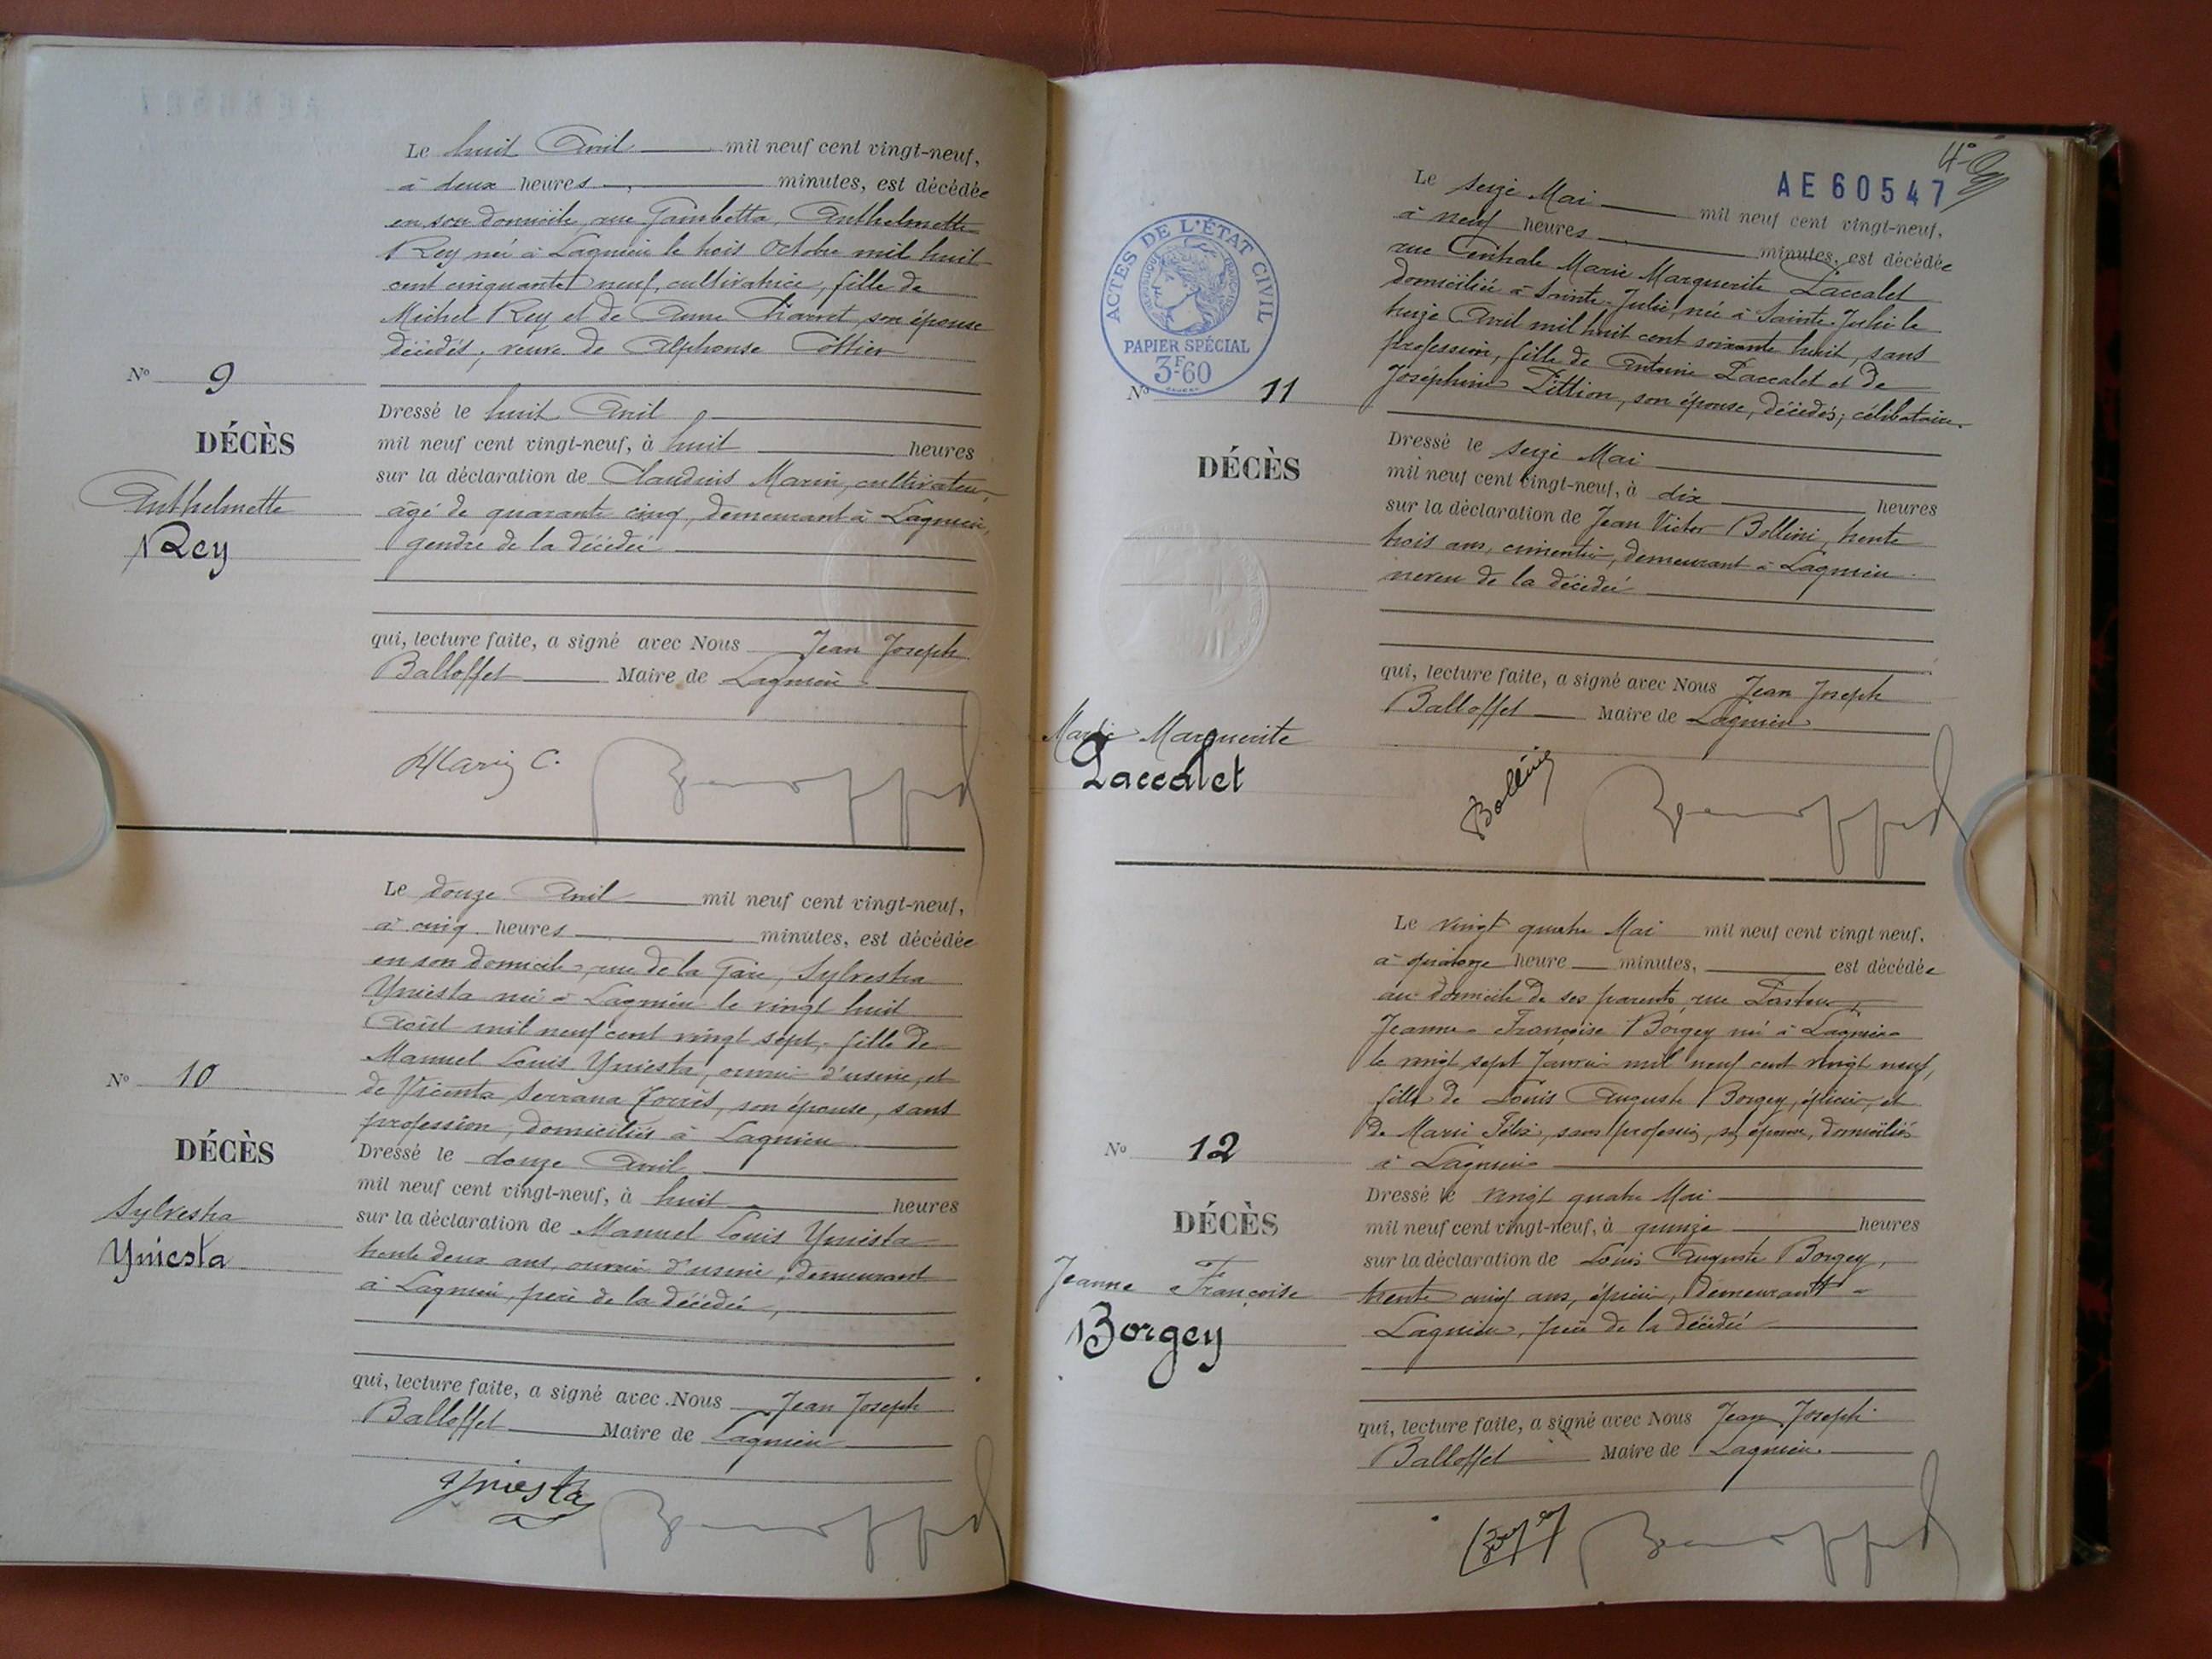 Le huit Avril mil neuf cent vingt-neuf,
à deux heures minutes, est décédée
en son domicile, rue Gambetta, Anthelmette
Rey née à Lagnieu le trois Octobre mil huit
cent cinquante neuf, cultivatrice, fille de
Michel Rey et de Anne Charvet, son épouse
décédés; veuve de Alphonse Cottier
N° 9
DÉCÈS
Anthelmette
Rey
Dressé le huit Avril
mil neuf cent vingt-neuf, à huit heures
sur la déclaration de Claudius Marin, cultivateur,
âgé de quarante cinq, demeurant à Lagnieu,
gendre de la décédée
qui, lecture faite, a signé avec Nous Jean Joseph
Balloffet Maire de Lagnieu
Marin C.
Le douze Avril mil neuf cent vingt-neuf,
à cinq heures minutes, est décédée
en son domicile, rue de la Gare, Sylvestra
Yniesta née à Lagnieu le vingt huit
Août mil neuf cent vingt sept, fille de
Manuel Louis Yniesta, ouvrier d'usine, et
de Vicenta Serrana Torrés, son épouse, sans
profession, domiciliés à Lagnieu
N° 10
DÉCÈS
Sylvestra
Yniesta
Dressé le douze Avril
mil neuf cent vingt-neuf, à huit heures
sur la déclaration de Manuel Louis Yniesta
trente deux ans, ouvrier d'usine, demeurant
à Lagnieu, père de la décédée,
qui, lecture faite, a signé avec Nous Jean Joseph
Balloffet Maire de Lagnieu
Yniesta
4e
AE60547
ACTES DE L'ÉTAT CIVIL
PAPIER SPÉCIAL
3F60
Le seize Mai mil neuf cent vingt-neuf,
à neuf heures minutes, est décédée
rue Centrale Marie Marguerite Laccalet
domiciliée à Sainte-Julie, née à Sainte-Julie le
treize Avril mil huit cent soixante huit, sans
profession, fille de Antoine Laccalet et de
Joséphine Pittion, son épouse, décédés; célibataire
N° 11
DÉCÈS
Marie Marguerite
Laccalet
Dressé le seize Mai
mil neuf cent vingt-neuf, à dix heures
sur la déclaration de Jean Victor Bollini, trente
trois ans, cimentier, demeurant à Lagnieu
neveu de la décédée
qui, lecture faite, a signé avec Nous Jean Joseph
Balloffet Maire de Lagnieu
Bollini
Le vingt quatre Mai mil neuf cent vingt neuf,
à quatorze heure minutes, est décédée
au domicile de ses parents, rue Pasteur,
Jeanne-Françoise Borgey née à Lagnieu
le vingt sept Janvier mil neuf cent vingt neuf,
fille de Louis Auguste Borgey, épicier, et
de Marie Félix, sans profession, son épouse, domiciliés
à Lagnieu
N° 12
DÉCÈS
Jeanne Françoise
Borgey
Dressé le vingt quatre Mai
mil neuf cent vingt-neuf, à quinze heures
sur la déclaration de Louis Auguste Borgey,
trente cinq ans, épicier, demeurant à
Lagnieu, père de la décédée
qui, lecture faite, a signé avec Nous Jean Joseph
Balloffet Maire de Lagnieu.